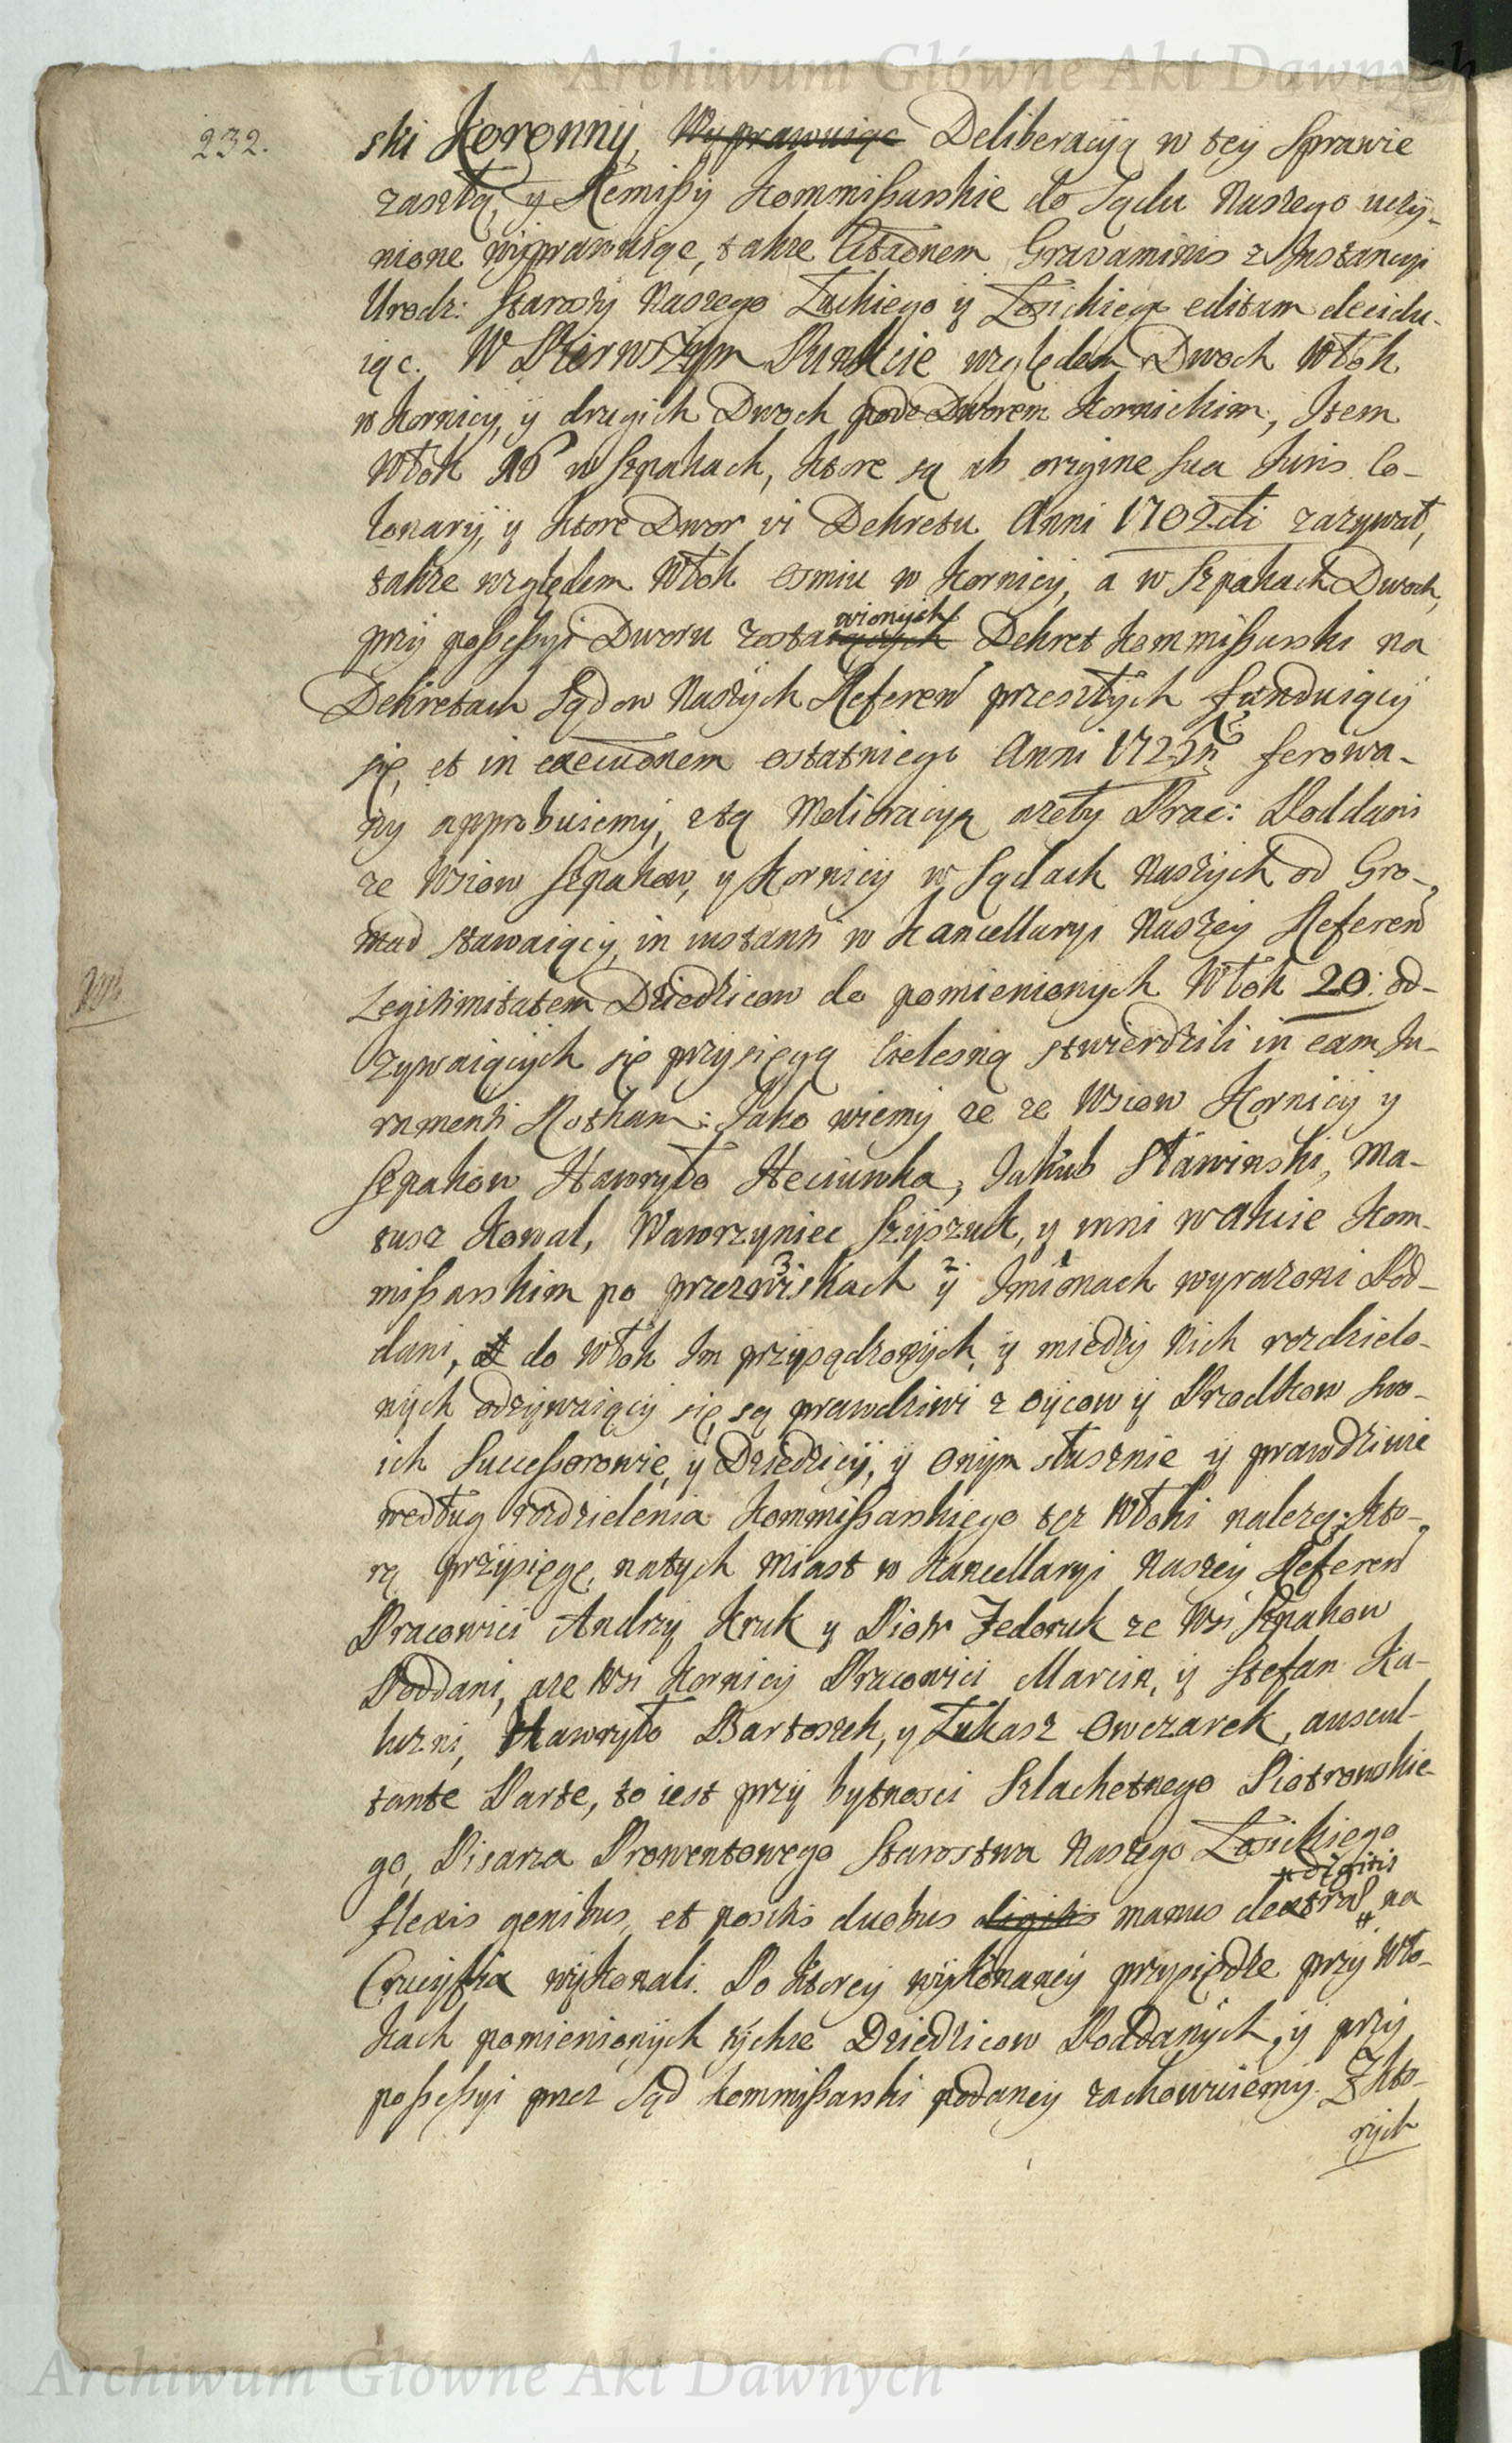 Archiwum Główne Akt Dawnych
232.
ski Koronny, Wyprawuiąc Deliberacyą w tey Sprawie
zaszłą, y Remissy Kommissarskie do Sądu Naszego uczy-
nione wyprawuiąc, także Citaōnem Gravaminis z Instancyi
Urodz: Starosty Naszego Łuckiego y Łosickiego editam decidu-
iąc. W Pierwszym Punkcie względem Dwoch Włok
w Kornicy, y drugich Dwoch pode Dworem Kornickim, Item
Włok 16 w Szpakach, ktore są ab origine sua Juris Co-
lonarÿ, y ktore Dwor vi Dekretu Anni 1702di zazywał,
także względem Włok osmiu w Kornicy, a w Szpakach Dwoch,
przy possessyi Dworu zostaiących wionych Dekret Kommissarski na
Dekretach Sądow Naszych Referen̄ przeszłych funduiący
się, et in execuōnem ostatniego Anni ferowa-
ny approbuiemy, z tą Melioracyą ażeby Prac: Poddani
ze Wsiow Szpakow, y Kornicy w Sądach Naszych od Gro-
mad stawaiący, in instanti w Kancellaryi Naszey Referen̄
Legitimitatem Dziedzicow do pomienionych Włok 20: od-
zywaiących się przysięgą Cielesną stwierdzili in eam Ju-
ramenti Rotham: Jako wiemy ze ze Wsiow Kornicy y
Szpakow Hawryło Heciunka, Jakub Sławinski, Ma-
tusz Kowal, Wawrzyniec Szyszuk, y inni w akcie Kom-
missarskim po przezwiskach 3 y 2 Imionach 1 wyrażoni Pod-
dani, do Włok Im przysądzonych, y miedzy Nich rozdzielo-
nych odzywaiący się, są prawdziwi z Oycow y Przodkow swo-
ich Successorowie, y Dziedzicy, y Onym słusznie y prawdziwie
według rozdzielenia Kommissarskiego też Włoki należą: kto-
rą przysięgę, natych miast w Kancellaryi Naszey Referen̄
Pracowici Andrzy Kruk y Piotr Fedoruk ze Wsi Szpakow
Poddani, a ze Wsi Kornicy Pracowici Marcin, y Stefan Ka-
luzni, Hawryło Bartoszek, y Łukasz Owczarek, auscul-
tante Parte, to iest przy bytnosci Szlachetnego Piotrowskie-
go, Pisarza Prowentowego Starostwa Naszego Łosickiego
flexis genibus, et positis duobus digitis manus dextræ # digitis na
Crucifix wykonali. Po ktorey wykonaney przysiędze przy Wło-
kach pomienionych tychze Dziedzicow Poddanych, y przy
possessyi przez Sąd Kommissarski podaney zachowuiemy. Z kto-
rych
Archiwum Główne Akt Dawnych